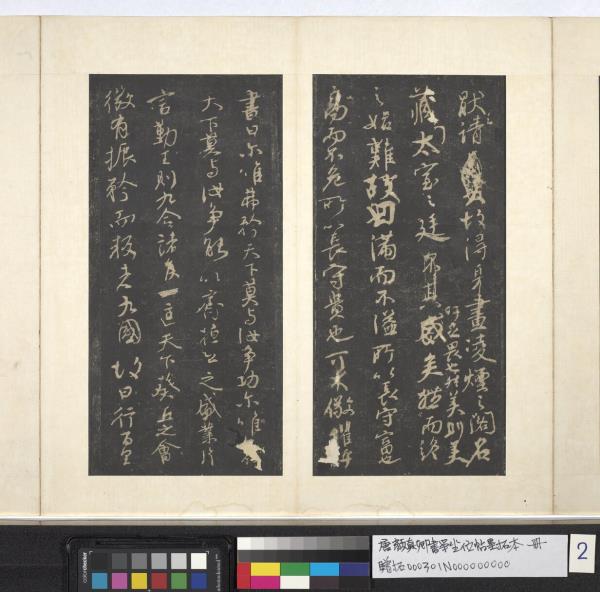 猷請故得身畫凌煙之閣名
藏太室之廷吁足畏也然美則美矣然而終
之始難故曰滿而不溢所以長守富也
高而不危所以長守貴也可不儆懼乎
書曰爾唯弗矜天下莫與汝爭功爾唯不伐
天下莫與汝爭能以齊桓公之盛業片
言勤王則九合諸侯一匡天下葵丘之會
微有振矜而叛者九國故曰行百里
唐顏真卿書爭坐位帖墨拓本 一冊
贈拓000301N000000000
2